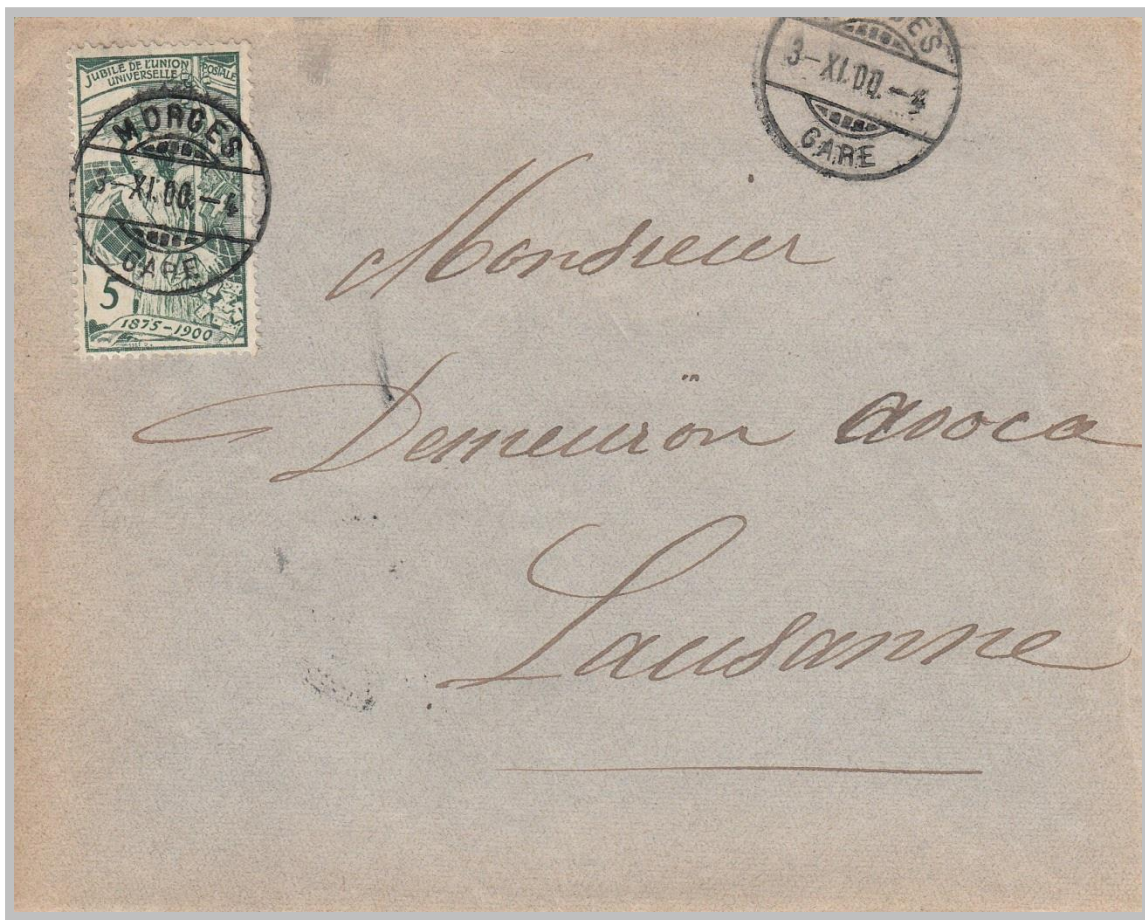 JUBILÉ DE L'UNION
UNIVERSELLE POSTALE
MORGES
3-XI.00.-4
GARE
5
1875-1900
3-XI.00.-4
GARE
Monsieur
Demeuron avoca
Lausanne